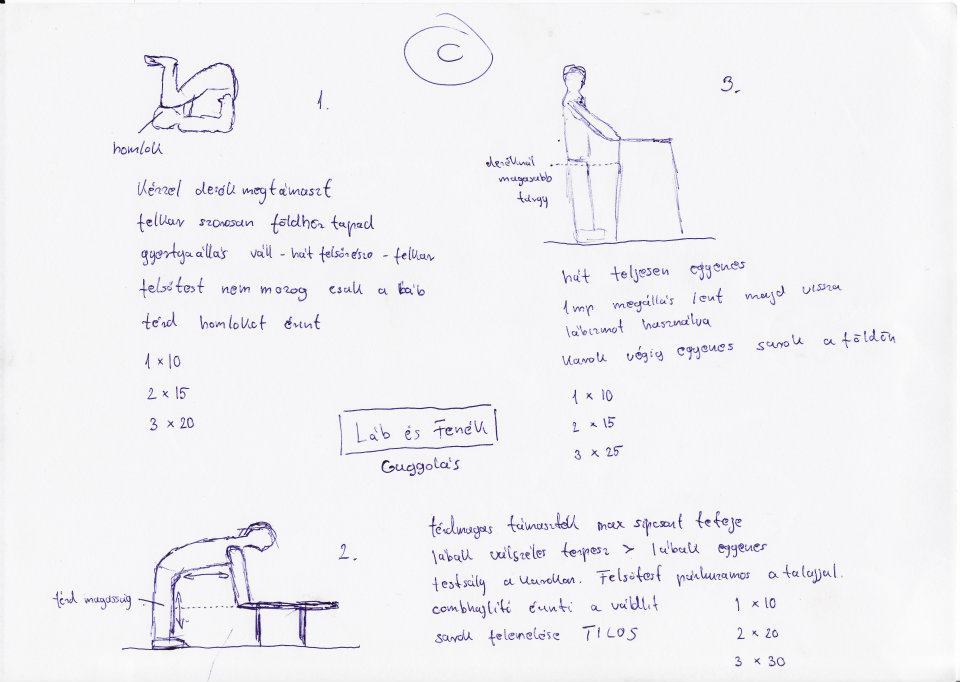 C
1.
homlok
kézzel derék megtámaszt
felkar szorosan földhöz tapad
gyertyaállás váll - hát felsőrésze - felkar
felsőtest nem mozog csak a láb
térd homlokot érint
1 x 10
2 x 15
3 x 20
3.
deréknál
magasabb
tárgy
hát teljesen egyenes
1mp megállás lent majd vissza
lábizmot használva
karok végig egyenes sarok a földön
1 x 10
2 x 15
3 x 25
Láb és Fenék
Guggolás
2.
térd magasság
térdmagas támaszték max sípcsont teteje
lábak vállszéles terpesz > lábak egyenes
testsúly a karokon. Felsőtest párhuzamos a talajjal.
combhajlító érinti a vádlit
sarok felemelése TILOS
1 x 10
2 x 20
3 x 30